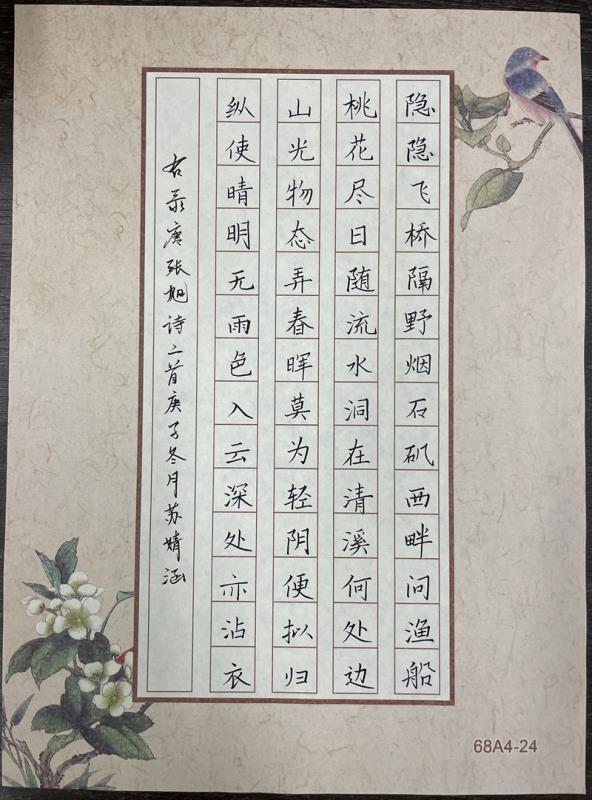 隐隐飞桥隔野烟石矶西畔问渔船
桃花尽日随流水洞在清溪何处边
山光物态弄春晖莫为轻阴便拟归
纵使晴明无雨色入云深处亦沾衣
右录唐张旭诗二首庚子冬月苏婧涵
68A4-24